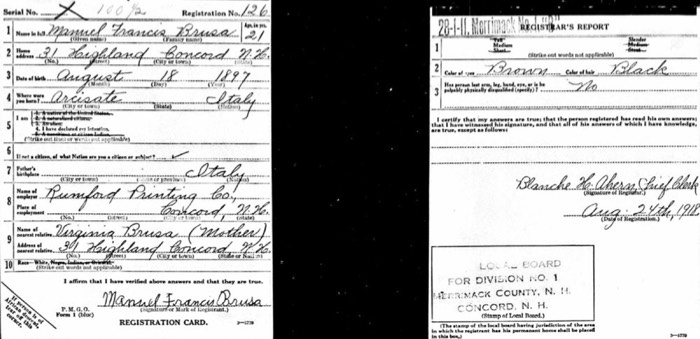 Serial No. 1002 Registration No. 126
1 Name in full Manuel Francis Brusa Age, in yrs. 21
(Given name) (Family name)
2 Home address 31 Highland Concord N.H.
(No.) (Street) (City or town) (State)
3 Date of birth August 18 1897
(Month) (Day) (Year)
4 Where were you born? Arusate Italy
(City or town) (State) (Nation)
5 I am
4. I have declared my intention.
(Strike out lines or words not applicable)
6 If not a citizen, of what Nation are you a citizen or subject?
7 Father's birthplace Italy
(City or town) (State or province) (Nation)
8 Name of employer Rumford Printing Co.,
Place of employment Concord, N.H.
(No.) (Street) (City or town) (State)
9 Name of nearest relative Virginia Brusa (Mother)
Address of nearest relative 31 Highland Concord N.H.
(No.) (Street) (City or town) (State or Nation)
10 Race—White, Negro, Indian, or Oriental
(Strike out words not applicable)
I affirm that I have verified above answers and that they are true.
P. M. G. O.
Form 1 (blue)
Manuel Francis Brusa
(Signature or Mark of Registrant.)
REGISTRATION CARD.
If person is
corner.
28-1-11. Merrimack No. 1 "B"
REGISTRAR'S REPORT
1 Tall Slender
Medium Medium
Short Stout
(Strike out words not applicable)
2 Color of eyes Brown Color of hair Black
3 Has person lost arm, leg, hand, eye, or is he palpably physically disqualified (specify)? No
I certify that my answers are true; that the person registered has read his own answers;
that I have witnessed his signature, and that all of his answers of which I have knowledge,
are true, except as follows:
Blanche H. Ahern, Chief Clerk
(Signature of Registrar)
Aug. 24th, 1918
(Date of Registration)
LOCAL BOARD
FOR DIVISION NO. 1
MERRIMACK COUNTY, N. H.
CONCORD, N. H.
(Stamp of Local Board.)
(The stamp of the local board having jurisdiction of the area
in which the registrant has his permanent home shall be placed
in this box.)